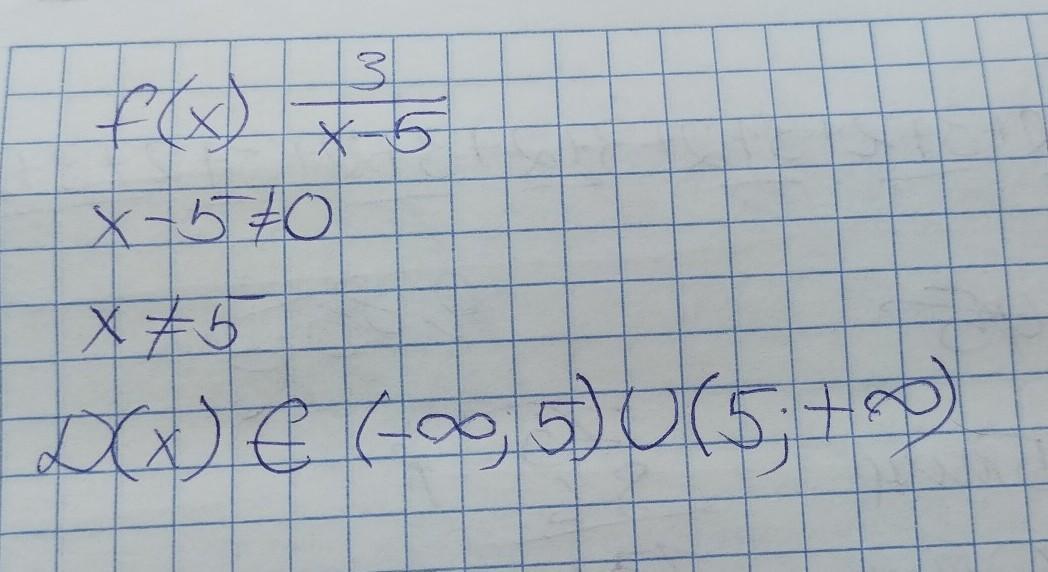 f(x) 3/(x-5)
x-5≠0
x≠5
D(x) ∈ (-∞, 5) ∪ (5; +∞)